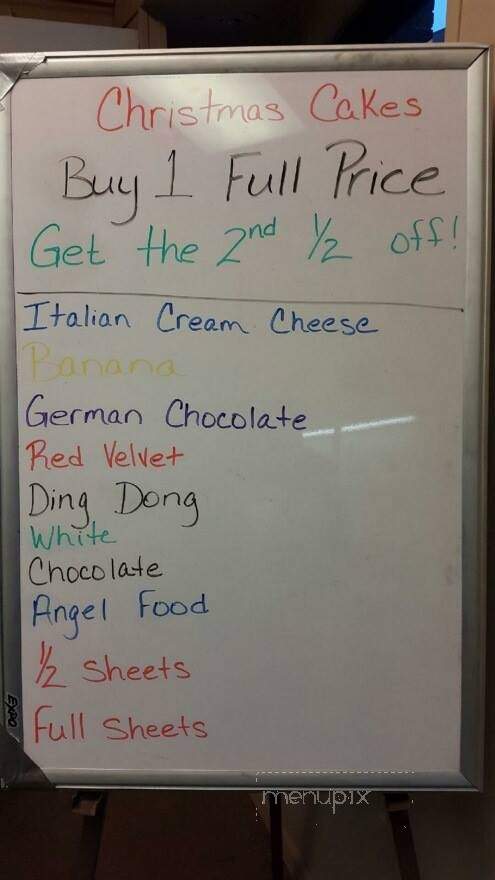 Christmas Cakes
Buy 1 Full Price
Get the 2nd 1/2 off!
Italian Cream Cheese
Banana
German Chocolate
Red Velvet
Ding Dong
White
Chocolate
Angel Food
1/2 Sheets
Full Sheets
EXPO
menupix